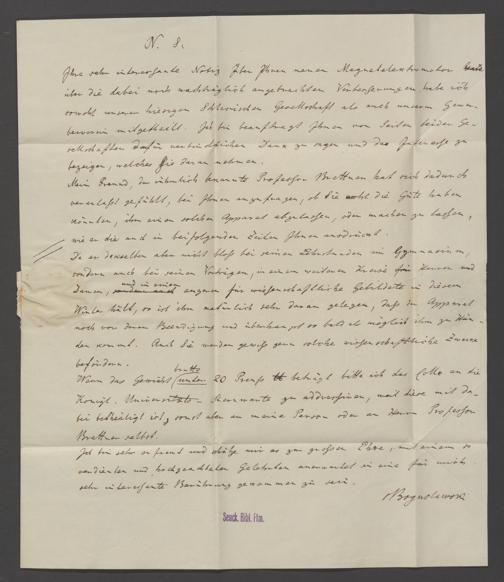 N. 8.
Ihre sehr interessante Notiz über Ihren neuen Magnetelectromotor
über die dabei noch nachträglich angebrachten Verbesserungen habe ich
sowohl unserer hiesigen Schlesischen Gesellschaft als auch unserem Gewer-
beverein mitgetheilt. Ich bin beauftragt Ihnen von Seiten beider Ge-
sellschaften dafür verbindlichen Dank zu sagen und das Interesse zu
bezeigen, welches sie daran nehmen.
Mein Freund, der rühmlich bekannte Professor Brettner hat sich dadurch
veranlaßt gefühlt, bei Ihnen anzufragen, ob Sie wohl die Güte haben
könnten, ihm einen solchen Apparat abzulassen, oder machen zu lassen,
wie er dies auch in beifolgenden Zeilen Ihnen ausdrückt.
Da er denselben aber nicht bloß bei seinen Lehrstunden im Gymnasium,
sondern auch bei seinen Vorträgen, in einem weiteren Kreise für Herren und
Damen, und in einem engeren für wissenschaftliche Gebildete in diesem
Winter hält, so ist ihm natürlich sehr daran gelegen, daß der Apparat
noch vor deren Beendigung und überhaupt so bald als möglich ihm zu Hän-
den kommt. Auch Sie werden gewiß gern solche wissenschaftliche Zwecke
befördern.
Wenn das Gewicht brutto unter 20 Preuß beträgt bitte ich das Collo an die
Königl. Universitäts-Sternwarte zu addressiren, weil diese mit da-
bei betheiligt ist, sonst aber an meine Person oder an Herrn Professor
Brettner selbst.
Ich bin sehr erfreut und schätze mir es zur großen Ehre, mit einem so
verdienten und hochgeachteten Gelehrten anerkannt in eine für mich
sehr interessante Berührung gekommen zu sein.
vBoguslawski
Senck. Bibl. Ffm.